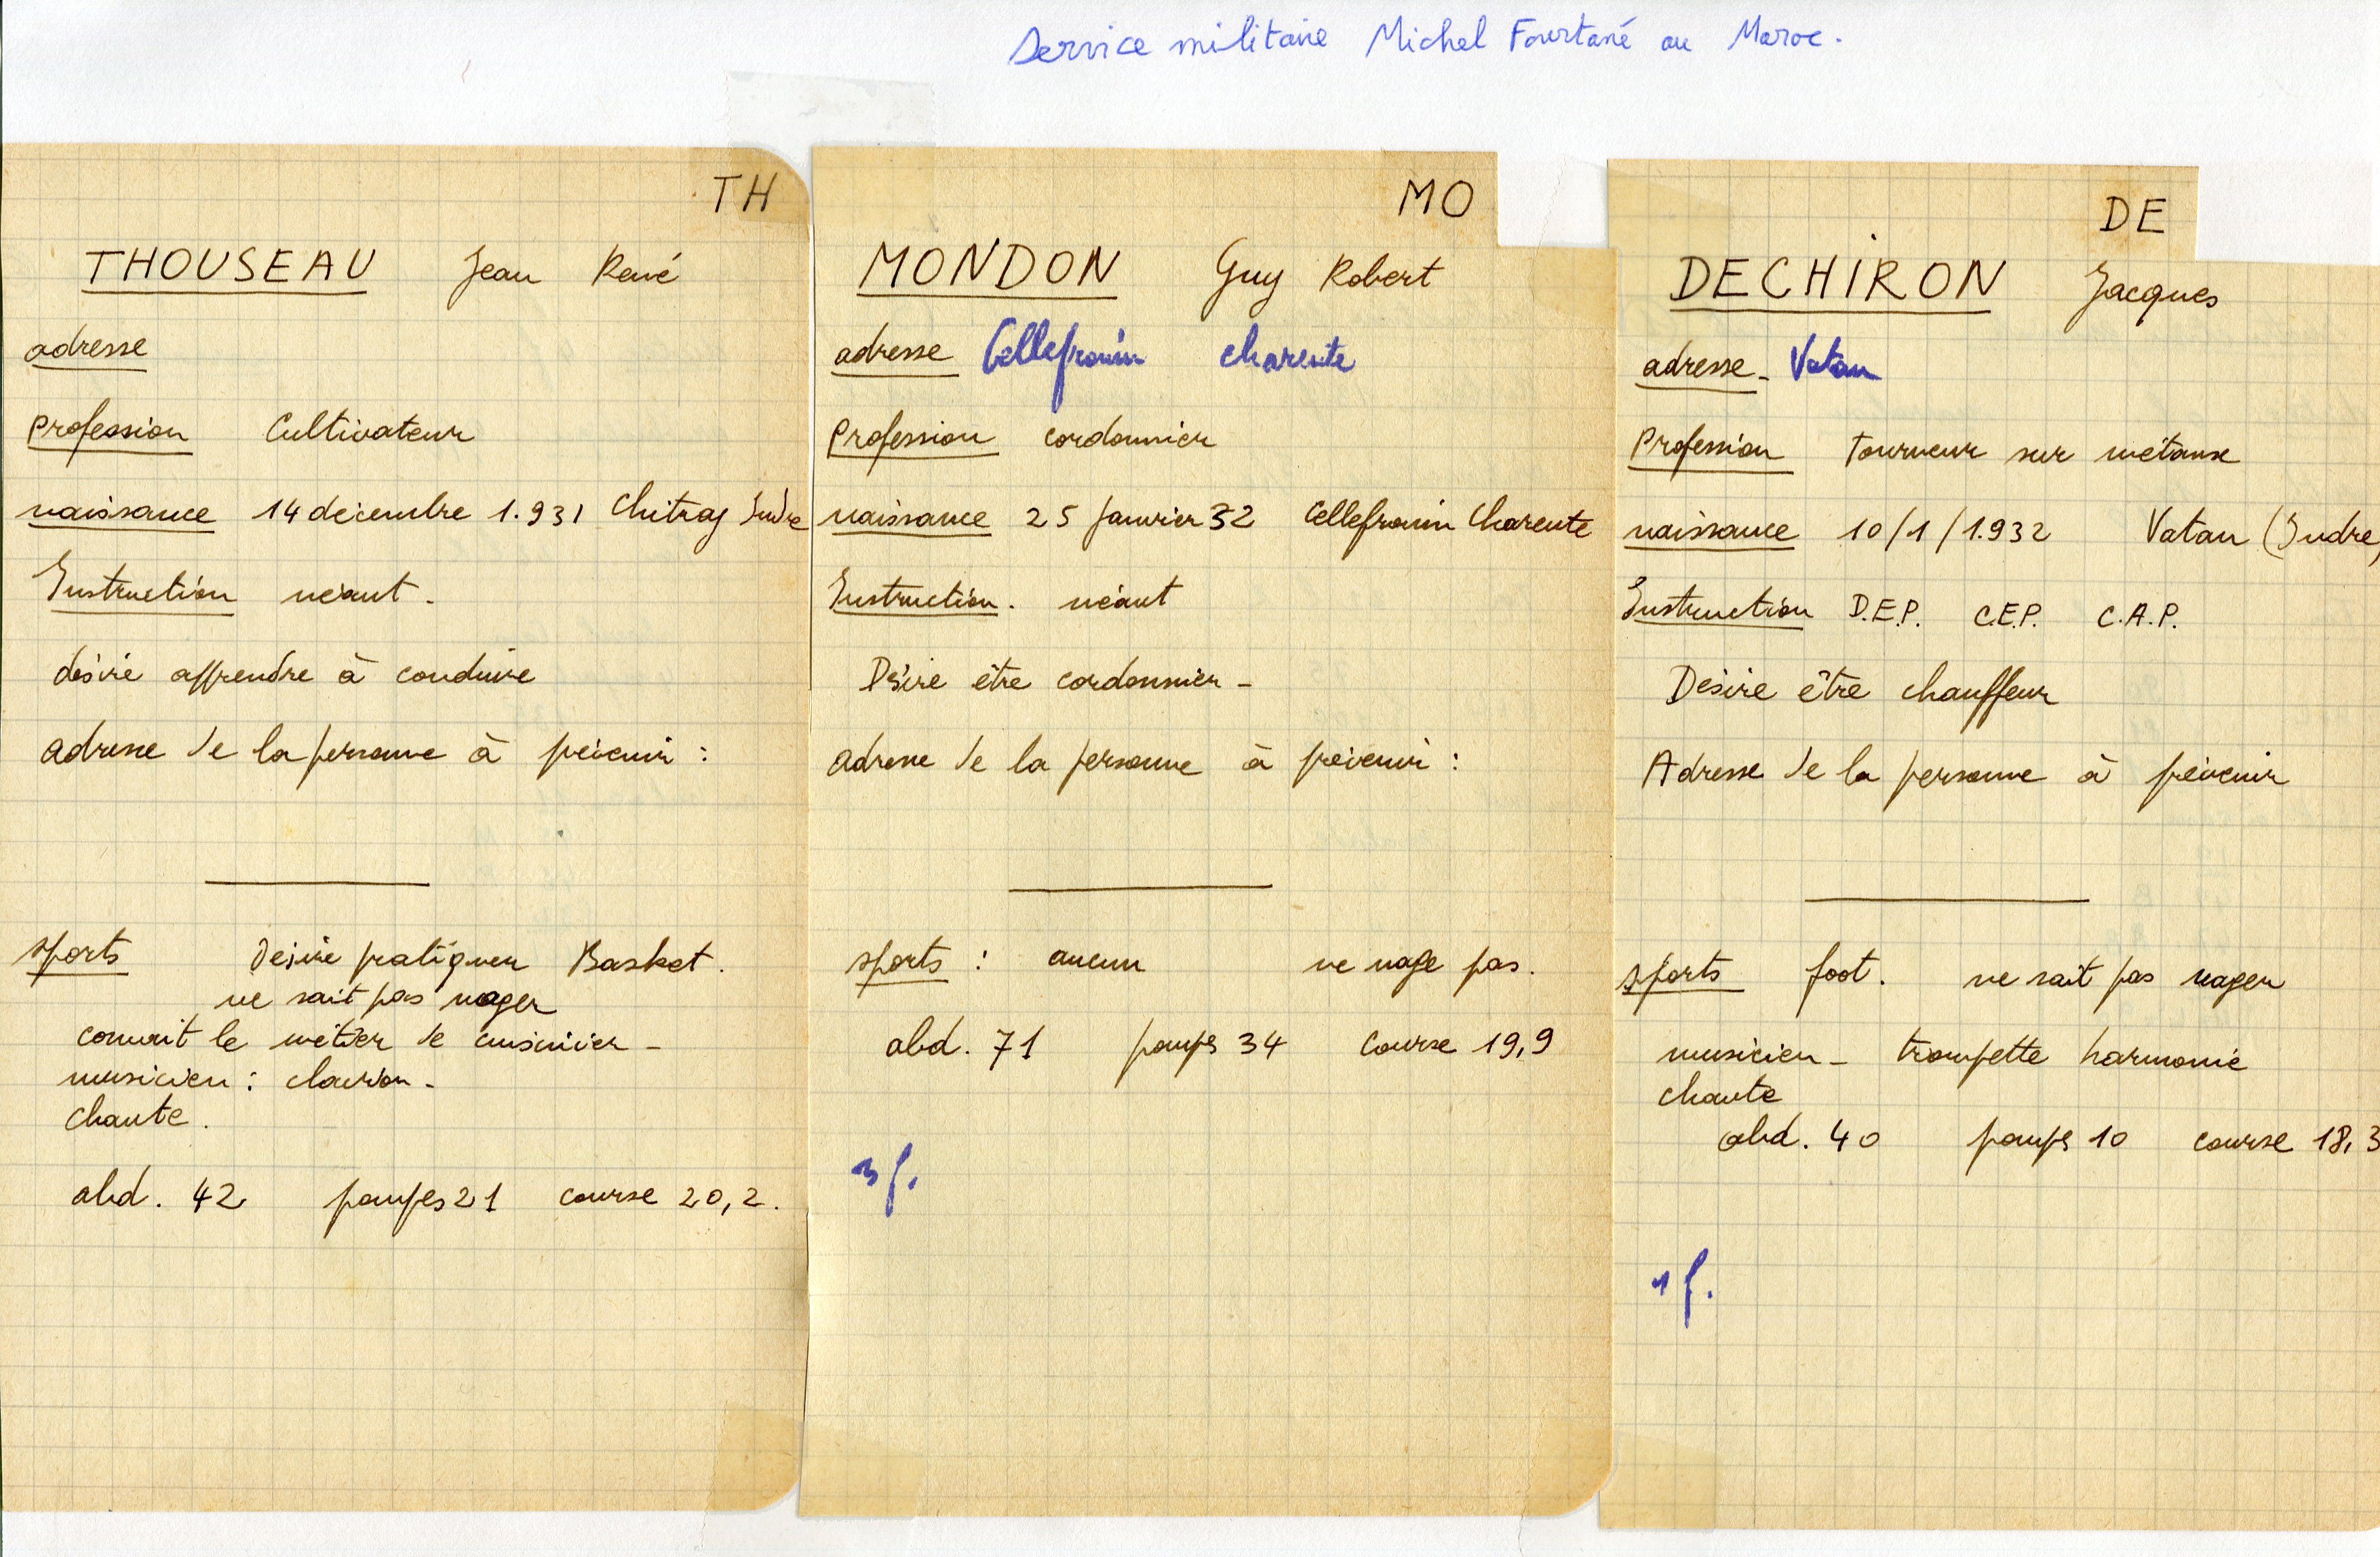 Service militaire Michel Fourtané au Maroc.
TH
THOUSEAU Jean René
adresse
Profession Cultivateur
naissance 14 décembre 1.931 Chitray Indre
Instruction néant.
désire apprendre à conduire
adresse de la personne à prévenir :
sports Désire pratiquer Basket.
ne sait pas nager
connait le métier de cuisinier -
musicien : clairon -
chante.
abd. 42 pompes 21 course 20,2.
MO
MONDON Guy Robert
adresse Cellefrouin charente
Profession cordonnier
naissance 25 janvier 32 Cellefrouin Charente
Instruction. néant
Désire être cordonnier -
adresse de la personne à prévenir :
sports : aucun ne nage pas.
abd. 71 pompes 34 course 19,9
3 f.
DE
DECHIRON Jacques
adresse - Vatan
Profession Tourneur sur métaux
naissance 10/1/1.932 Vatan (Indre)
Instruction D.E.P. C.E.P. C.A.P.
Désire être chauffeur
Adresse de la personne à prévenir
sports foot. ne sait pas nager
musicien - trompette harmonie
chante
abd. 40 pompes 10 course 18,3
1 f.